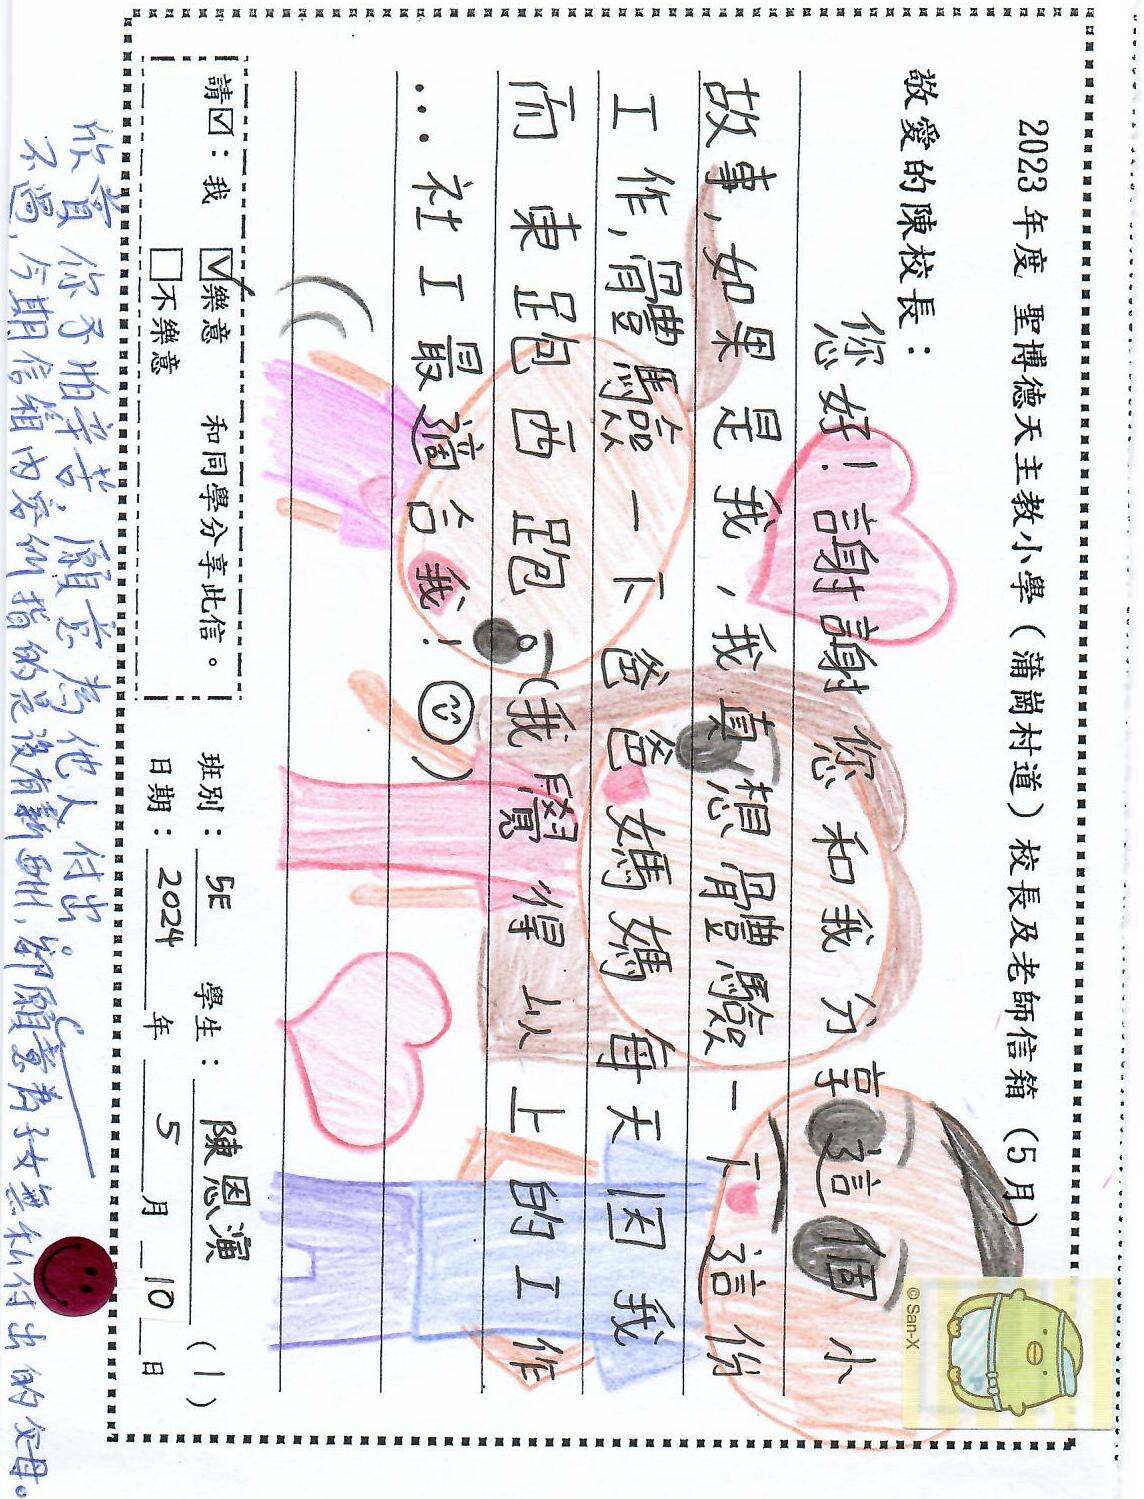 2023 年度 聖博德天主教小學（蒲崗村道）校長及老師信箱（5 月）
敬愛的陳校長：
您好！謝謝您和我分享這個小
故事，如果是我，我真想體驗一下這份
工作，體驗一下爸爸媽媽每天因我
而東跑西跑。（我覺得以上的工作
…社工最適合我！）
請☑：我 ☑樂意 和同學分享此信。
□不樂意
班別：5E 學生：陳恩演（1）
日期：2024 年 5 月 10 日
欣賞你不怕辛苦，願意為他人付出。
不過，今期信箱內容所指的是沒有薪酬，卻願意為子女無私付出的父母。
© San-X